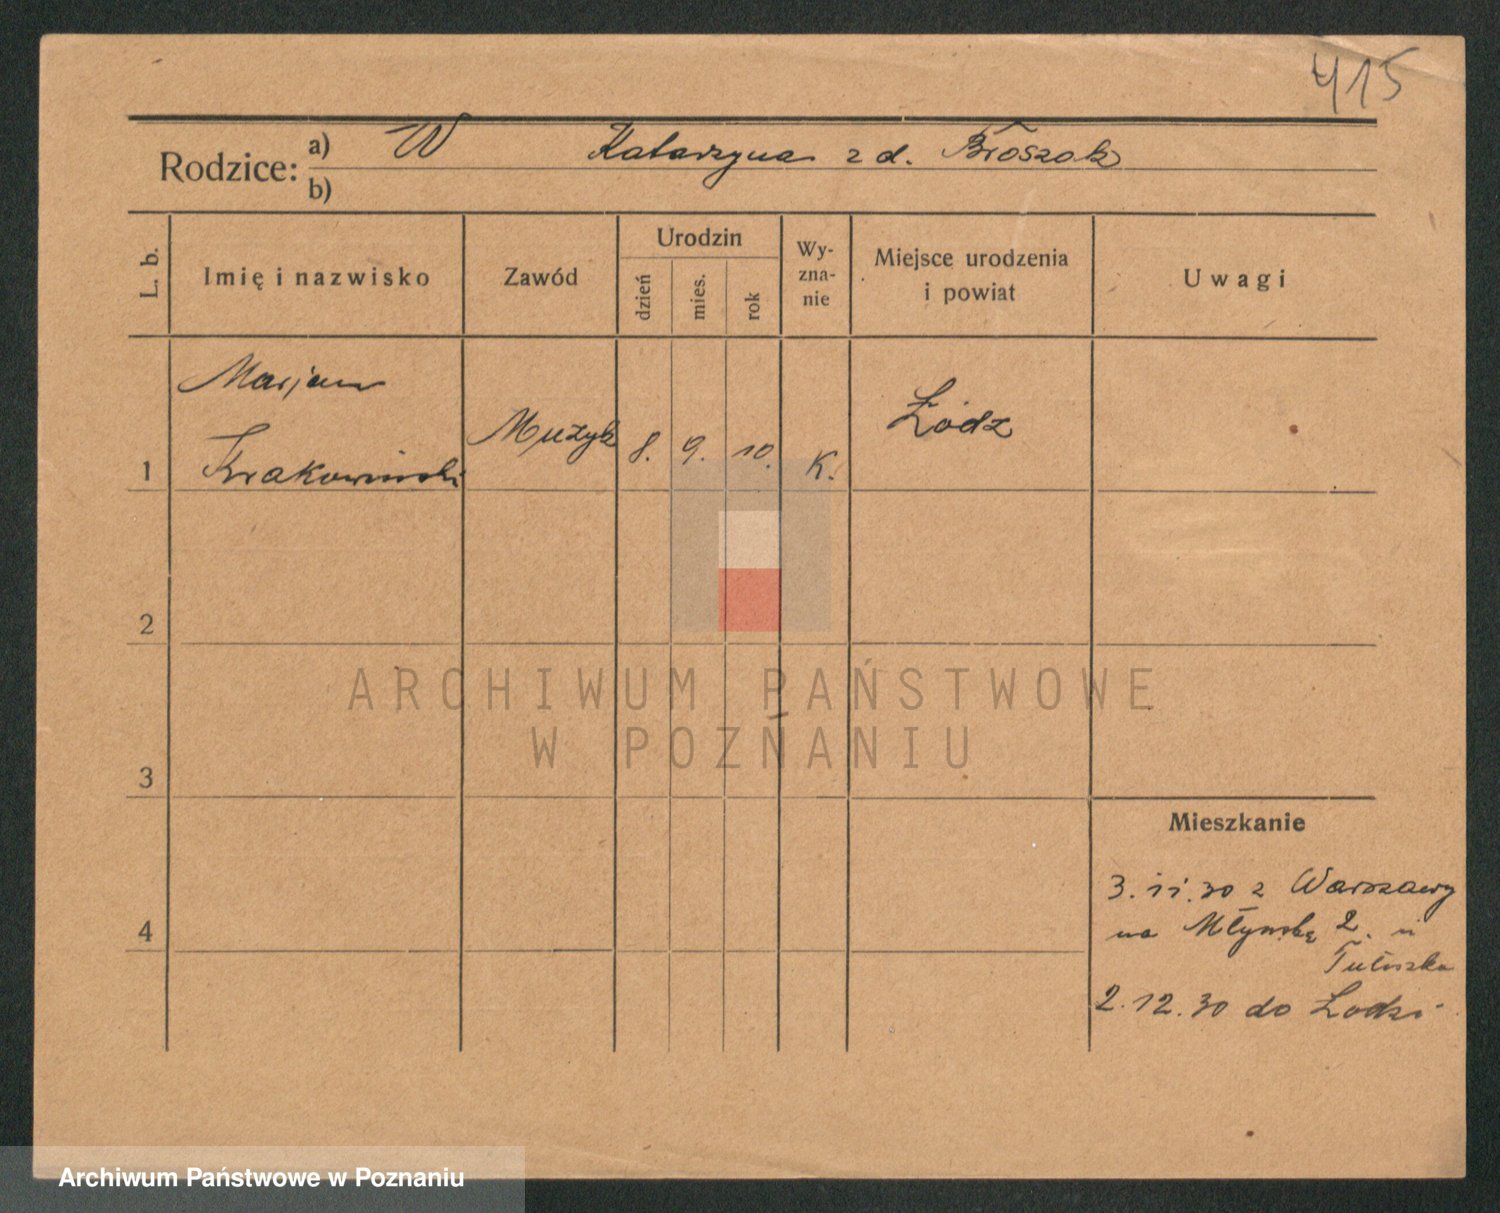 415
Rodzice: a) W Katarzyna z d. Broszak
b)
L. b.
Imię i nazwisko
Zawód
Urodzin
dzień
mies.
rok
Wy-
zna-
nie
Miejsce urodzenia
i powiat
Uwagi
Marjan
Krakowiński
Muzyk
8. 9. 10.
K.
Łódz
1
2
3
4
ARCHIWUM PAŃSTWOWE
W POZNANIU
Mieszkanie
3.11.30 z Warszawy
na Młyńską 2. u
2.12.30 do Łodzi
Archiwum Państwowe w Poznaniu